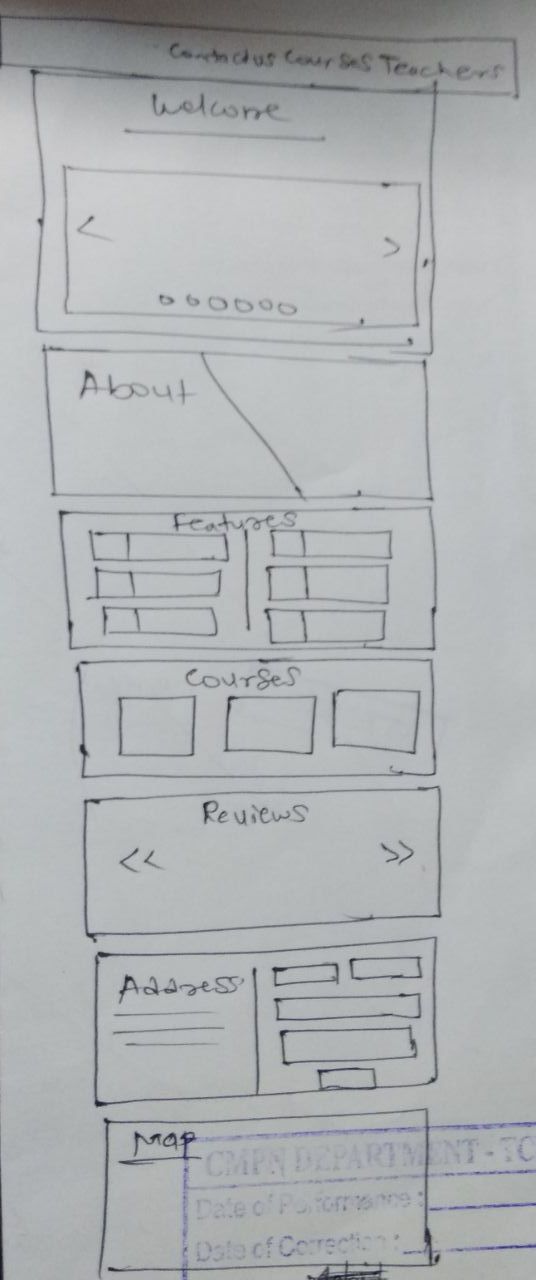 Contactus Courses Teachers
Welcome
About
Features
Courses
Reviews
Address
Map
CMPN DEPARTMENT - TC
Date of Performance :
Date of Correction :